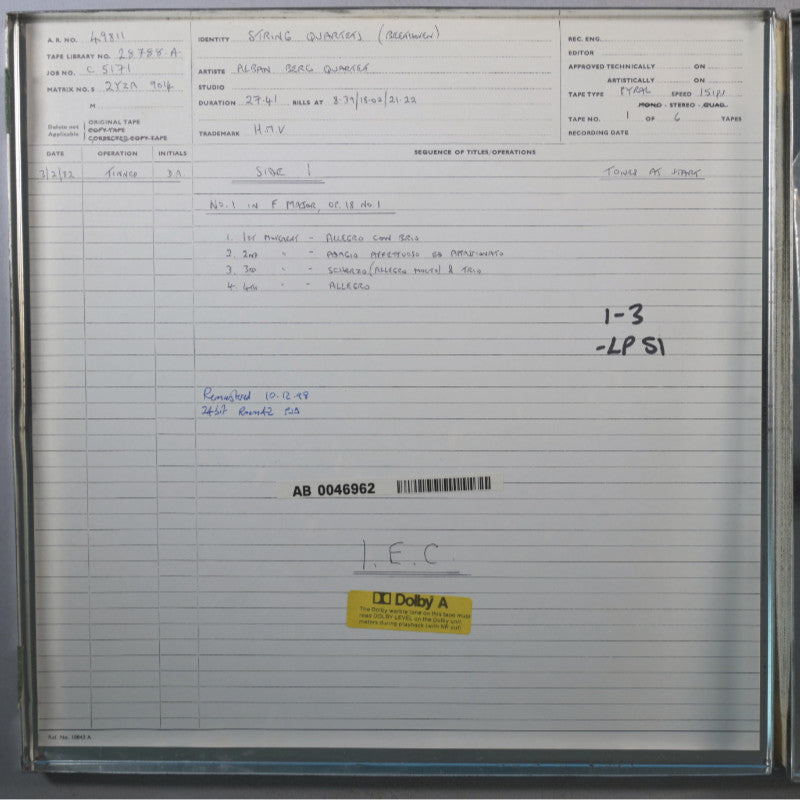 A. R. NO. 49811
TAPE LIBRARY NO. 28788-A
JOB NO. C 5171
MATRIX NO. S 2YZA 904
M
Delete not Applicable
ORIGINAL TAPE
COPY TAPE
CORRECTED COPY TAPE
IDENTITY STRING QUARTETS (BEETHOVEN)
ARTISTE ALBAN BERG QUARTET
STUDIO
DURATION 27.41 BILLS AT 8.39/18.02/21.22
TRADEMARK H.M.V
REC. ENG.
EDITOR
APPROVED TECHNICALLY ON
ARTISTICALLY ON
TAPE TYPE PYRAL SPEED 15IPS
MONO - STEREO - QUAD.
TAPE NO. 1 OF 6 TAPES
RECORDING DATE
DATE OPERATION INITIALS SEQUENCE OF TITLES/OPERATIONS
3/2/82 D.A. SIDE 1 TONES AT START
No. 1 IN F MAJOR, OP. 18 NO. 1
1. 1ST MOVEMENT - ALLEGRO CON BRIO
2. 2ND " - ADAGIO AFFETTUOSO ED APPASSIONATO
3. 3RD " - SCHERZO (ALLEGRO MOLTO) & TRIO
4. 4TH " - ALLEGRO
1-3
-LP S1
Remastered 10.12.98
24 bit
AB 0046962
I.E.C.
Dolby A
The Dolby warble tone on this tape must
read DOLBY LEVEL on the Dolby unit
meters during playback (with NR out).
Ref. No. 10843 A